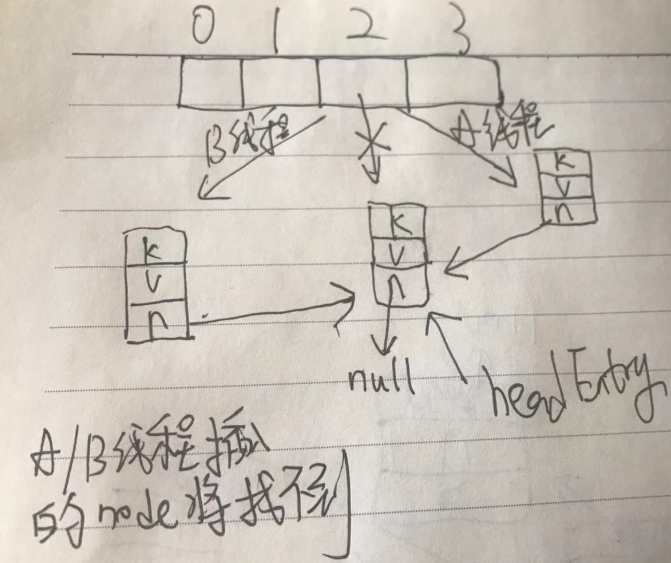 0 1 2 3
B线程
A线程
K
V
n
K
V
n
K
V
n
null
headEntry
A/B线程插入
的node将找不到